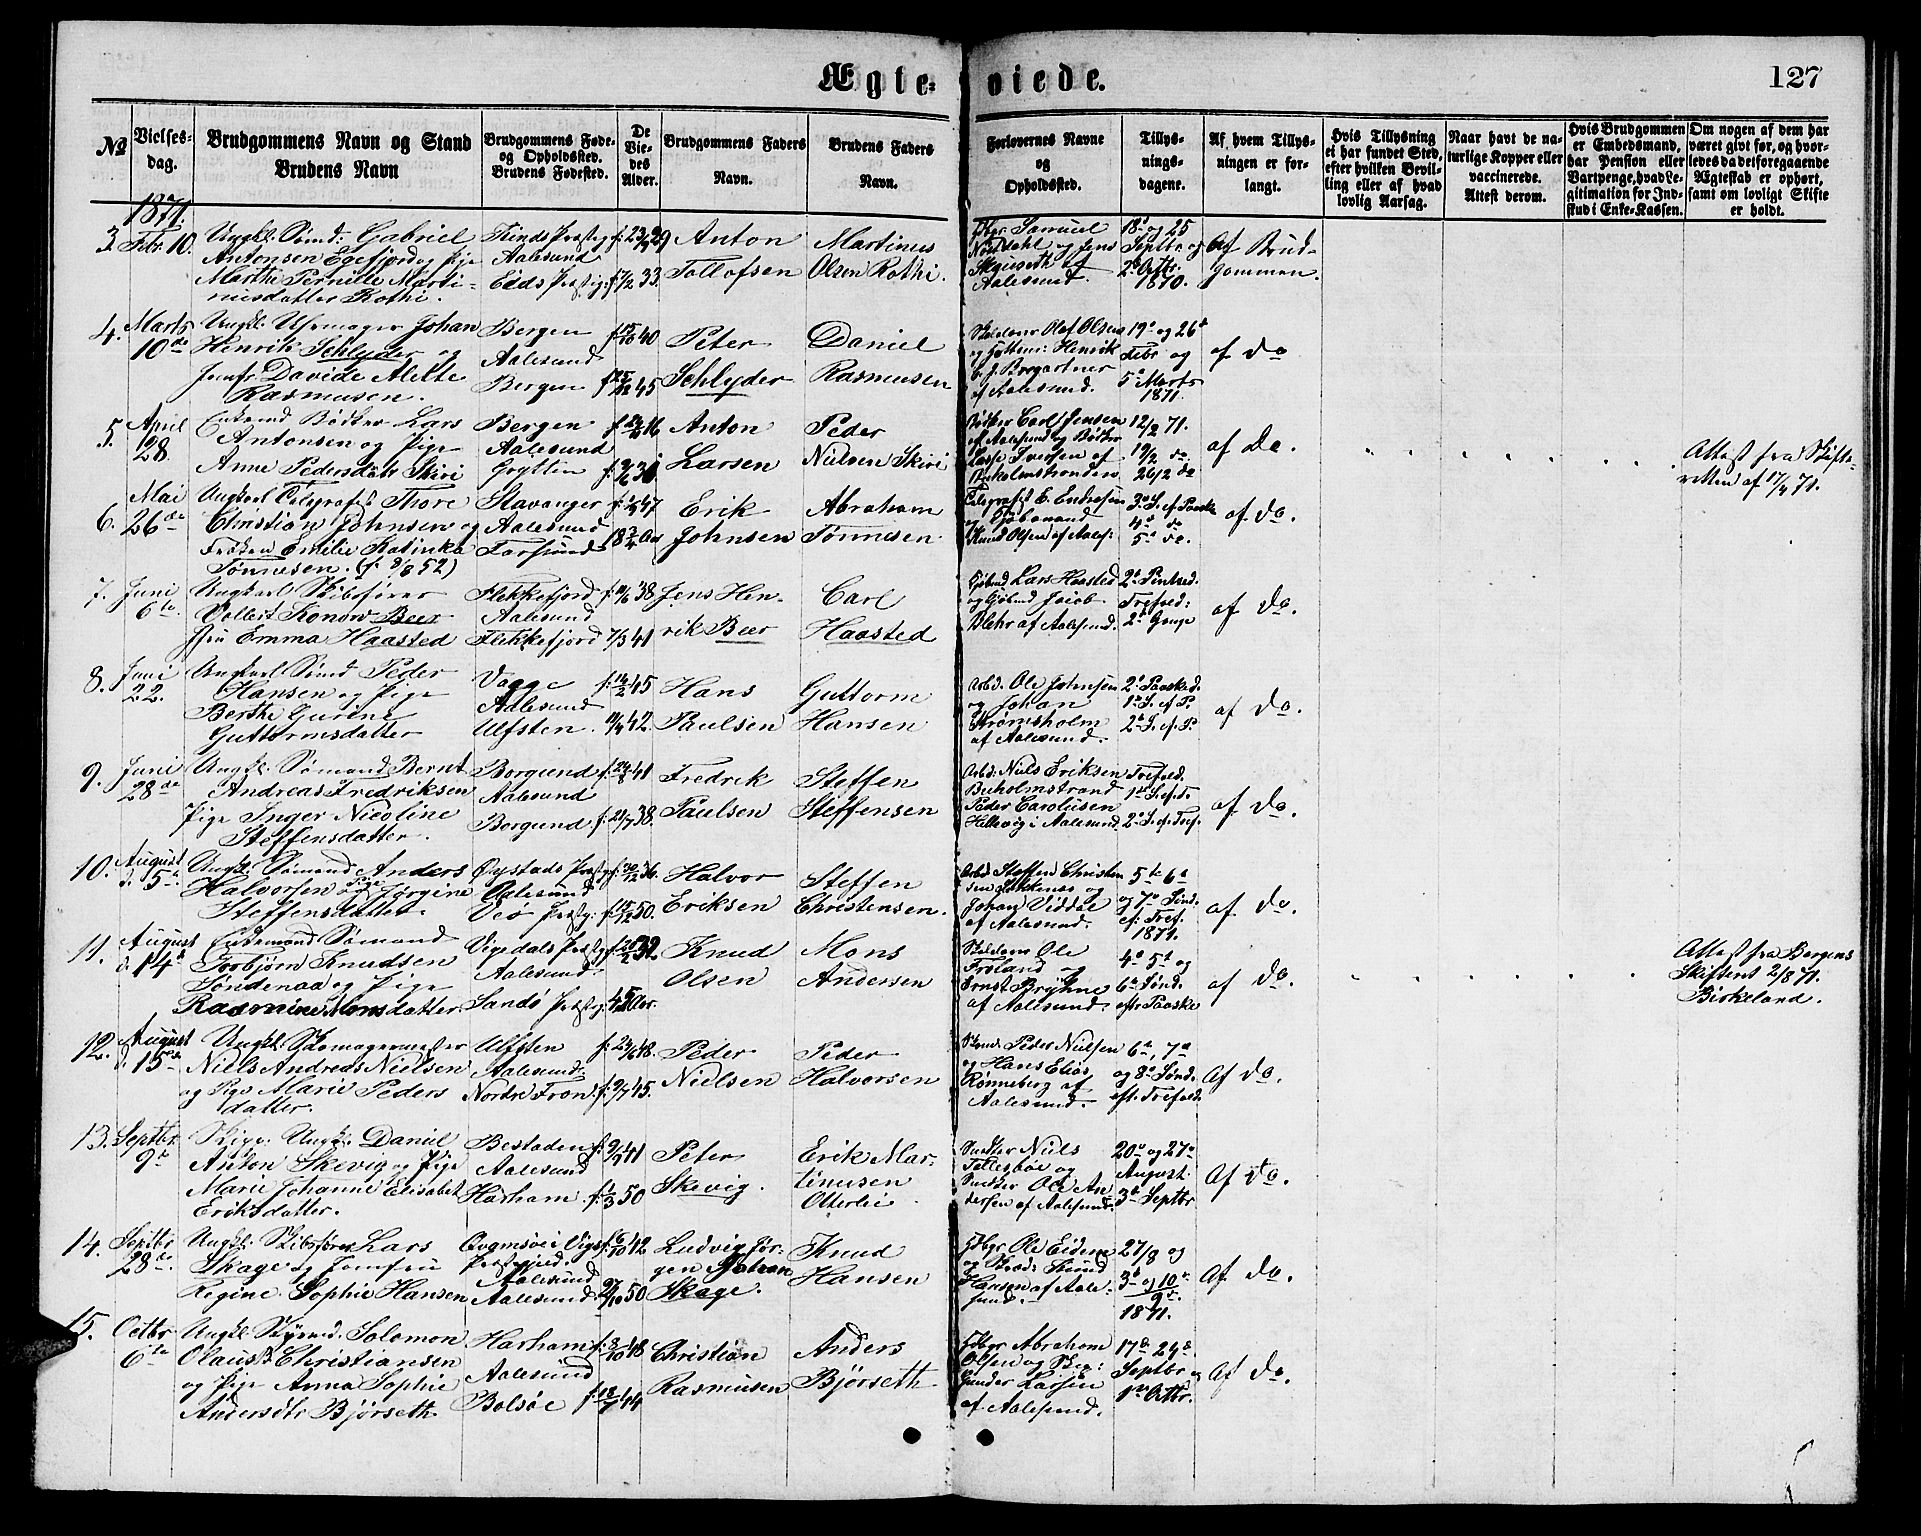 Ægte- viede. 127
№
Vielses-
dag.
Brudgommens Navn og Stand
Brudens Navn
Brudgommens Føde-
og Opholdssted.
Brudens Fødested.
De
Vie-
des
Alder.
Brudgommens Faders
Navn.
Brudens Faders
Navn.
Forlovernes Navne
og
Opholdssted.
Tillys-
nings-
dagene.
Af hvem Tillys-
ningen er for-
langt.
Hvis Tillysning
ei har fundet Sted,
efter hvilken Bevil-
ling eller af hvad
lovlig Aarsag.
Naar havt de na-
turlige Kopper eller
vaccinerede.
Attest derom.
Hvis Brudgommen
er Embedsmand,
har Pension eller
Vartpenge, hvad Le-
gitimation for Ind-
skud i Enke-Kassen.
Om nogen af dem har
været givt før, og hvor-
ledes da det foregaaende
Ægteskab er ophørt,
samt om lovligt Skifte
er holdt.
1871.
3. Febr. 10.
Ungkl. Sømd. Gabriel
Antonsen Egefjord og Pige
Marthe Pernille Marti-
nusdatter Rothi.
Aalesund
Eids Præstg:
33.
Anton
Martinus
Olsen Rothi.
Samuel
og Jens
af
Aalesund.
18d og 25
Septbr og
2d Octbr.
1870.
Af Brud-
gommen.
4. Marts
10de
Ungkl. Uhrmager Johan
Henrik Schlyder og
Jomfr. Davide Alette
Rasmusen.
Bergen
Aalesund
Bergen
f. 15/10 40
45
Peter
Schlyder
Daniel
Rasmusen
Olaf Olsen
Henrik
af Aalesund.
19d og 26d
Febr og
5d Marts
1871.
af do
5. April
28.
Enkemd Bødker Lars
Antonsen og Pige
Anne Pedersdatt Skiri
Bergen
Aalesund
Grytten
16
Anton
Larsen
Peder
Nielsen Skiri
Bødker Carl Jensen
af Aalesund og Bødker
Lasse Iversen af
Buholmstranden
12/2 71.
19/2 do
26/2 do
af Do.
Attest fra Skifte-
retten af 17/4 71.
6. Mai
26de
Ungkarl Telegrafist Thore
Christian Johnsen og
Frøken Emilie Katinka
Tønnesen. (f. 9/8 52)
Stavanger
Aalesund
Farsund
47
18 3/4 Aar
Erik
Johnsen
Abraham
Tønnesen.
Telegrafist E. Endresen
og Kjøbmand
Knud Olsen af Aales:
3d S. ef Paaske
4d do
5d do.
af do.
7. Juni
6te.
Ungkarl Skibsfører
Vollert Konow Beer
Jfr. Emma Haasted
Flekkefjord
Aalesund
Flekkefjord
38
7/3 41
Jens Hen-
rik Beer
Carl
Haasted
Kjøbmd Lars Haasted
og Kjøbmd Jacob
Blehr af Aalesund.
2d Pintsed.
Trefold:
2d Gange
af do.
8. Juni
22.
Ungkarl Sømd Peder
Hansen og Pige
Berthe Gurine
Guttormsdatter
Aalesund
Ulfsten.
f. 14/2 45
42.
Hans
Paulsen
Guttorm
Hansen
Arbd. Ole Johnsen
og Johan
Strømsholm
af Aalesund.
2d Paasked.
1d S. ef P.
2d S. ef. P.
af do.
9. Juni
28de
Ungkl. Sømand Bernt
Andreas Fredriksen
Pige Inger Nicoline
Steffensdatter.
Borgund
Aalesund
Borgund
f. 24/8 41
f. 21/7 38.
Fredrik
Paulsen
Steffen
Steffensen
Arbd. Niels Eriksen
Buholmstrand
Peder Carolusen
Hellevig i Aalesund.
Trefold.
1d S. ef. T.
2d S. ef. Tref.
af do.
10. August
d. 5te.
Ungkl. Sømand Anders
Halvorsen og Pige Jørgine
Steffensdatter.
Øiestads Præstg
Aalesund
Veø Præstg:
36.
f. 15/12 50.
Halvor
Eriksen
Steffen
Christensen.
Arbd Steffen Christen
sen og
Johan Viddal
af Aalesund.
5te 6d
og 7d Sønd.
ef: Tref.
1871.
af do.
11. August
d. 14d
Enkemand Sømand
Torbjørn Knudsen
Søndenaa og Pige
Rasmine Monsdatter.
Vigedals Præstg
Aalesund
Sandø Præstg:
45 Aar.
Knud
Olsen
Mons
Andersen
Ole
Frøland og
Ernst Bryhne
af Aalesund.
4d 5d og
6d Sønd.
eftr Paaske
af do.
Attest fra Bergens
Skifteret 2/8 71.
Birkeland.
12. August
d. 15de
Ungkl. Skomagermester
Niels Andreas Nielsen
og Pige Marie Peders
datter.
Ulfsten
Aalesund:
Nordre Fron.
f. 23/6 48.
f. 9/7 45.
Peder
Nielsen
Peder
Halvorsen
Peder Nielsen
og Hans Elias
Rønneberg af
Aalesund.
6d, 7d
og 8d Sønd.
eft. Trefold.
Af do.
13. Septbr.
9d
Ungk. Daniel
Anton Skevig og Pige
Marie Johanne Elisabet
Eriksdatter.
Bestaden
Aalesund
Harham
41
50
Peter
Skevig.
Erik Mar-
tinusen
Otterlei
Niels
Tellesbøe og
Ole An
dersen af Aalesund.
20d og 27d
August
3d Septbr
Af do.
14. Septbr
28de.
Ungkl. Skibsfører Lars
Skage og Jomfru
Regine Sophie Hansen
Aalesund
Aalesund.
f. 6/10 42
50
Ludvig Jør-
gen Johan
Skage.
Knud
Hansen
Ole Eidene
og Knud
Hansen af Aale-
sund.
27/8 og
3d og 10d
9d.
1871.
Af do.
15. Octbr
6te
Ungkl. Solomon
Olaus Christiansen
og Pige Anna Sophie
Andersdtr Bjørseth
Harham
Aalesund
Bolsøe
f. 8/10 48
44
Christian
Rasmusen
Anders
Bjørseth
Abraham
Olsen og
Gunder Larsen
af Aalesund.
17d 24d
Septbr og
1d Octbr.
Af do.